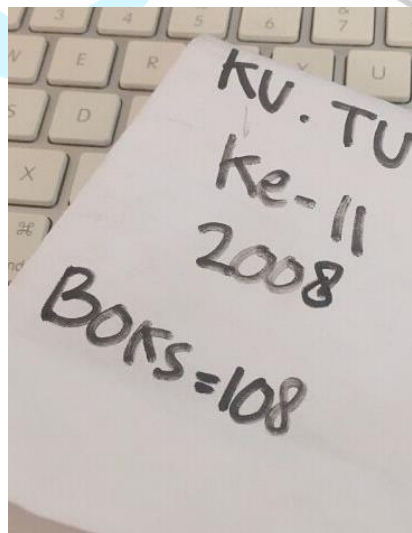 3 4 5 6 7
W E R Y U
S D
X
⌘
KU. TU
Ke-11
2008
BOKS=108